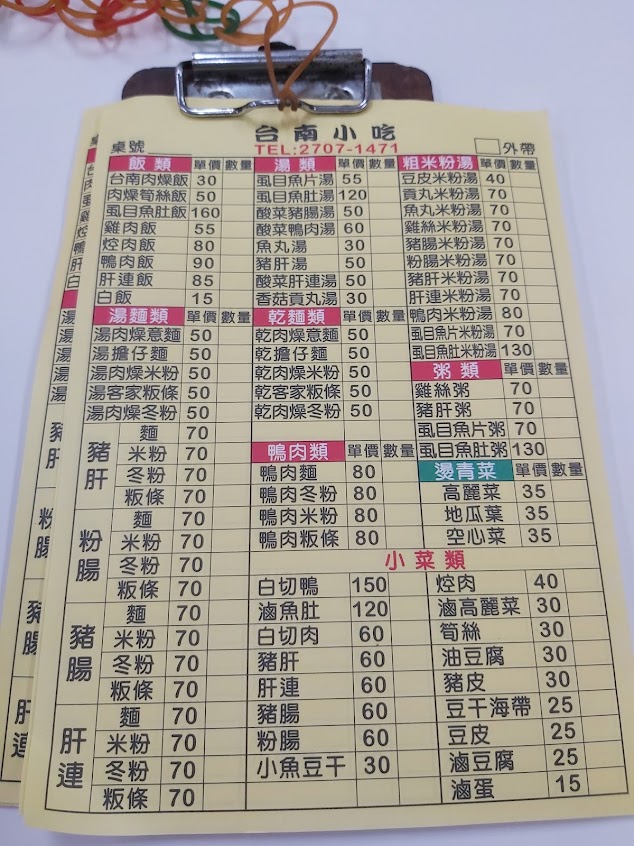 台南小吃
桌號 TEL:2707-1471 外帶
飯類 單價 數量
台南肉燥飯 30
肉燥筍絲飯 50
虱目魚肚飯 160
雞肉飯 55
焢肉飯 80
鴨肉飯 90
肝連飯 85
白飯 15
湯類 單價 數量
虱目魚片湯 55
虱目魚肚湯 120
酸菜豬腸湯 50
酸菜鴨肉湯 60
魚丸湯 30
豬肝湯 50
酸菜肝連湯 50
香菇貢丸湯 30
粗米粉湯 單價 數量
豆皮米粉湯 40
貢丸米粉湯 70
魚丸米粉湯 70
雞絲米粉湯 70
豬腸米粉湯 70
粉腸米粉湯 70
豬肝米粉湯 70
肝連米粉湯 70
鴨肉米粉湯 80
虱目魚片米粉湯 70
虱目魚肚米粉湯 130
湯麵類 單價 數量
湯肉燥意麵 50
湯擔仔麵 50
湯肉燥米粉 50
湯客家粄條 50
湯肉燥冬粉 50
乾麵類 單價 數量
乾肉燥意麵 50
乾擔仔麵 50
乾肉燥米粉 50
乾客家粄條 50
乾肉燥冬粉 50
粥類 單價 數量
雞絲粥 70
豬肝粥 70
虱目魚片粥 70
虱目魚肚粥 130
豬肝
麵 70
米粉 70
冬粉 70
粄條 70
粉腸
麵 70
米粉 70
冬粉 70
粄條 70
豬腸
麵 70
米粉 70
冬粉 70
粄條 70
肝連
麵 70
米粉 70
冬粉 70
粄條 70
鴨肉類 單價 數量
鴨肉麵 80
鴨肉冬粉 80
鴨肉米粉 80
鴨肉粄條 80
燙青菜 單價 數量
高麗菜 35
地瓜葉 35
空心菜 35
小菜類
白切鴨 150
滷魚肚 120
白切肉 60
豬肝 60
肝連 60
豬腸 60
粉腸 60
小魚豆干 30
焢肉 40
滷高麗菜 30
筍絲 30
油豆腐 30
豬皮 30
豆干海帶 25
豆皮 25
滷豆腐 25
滷蛋 15